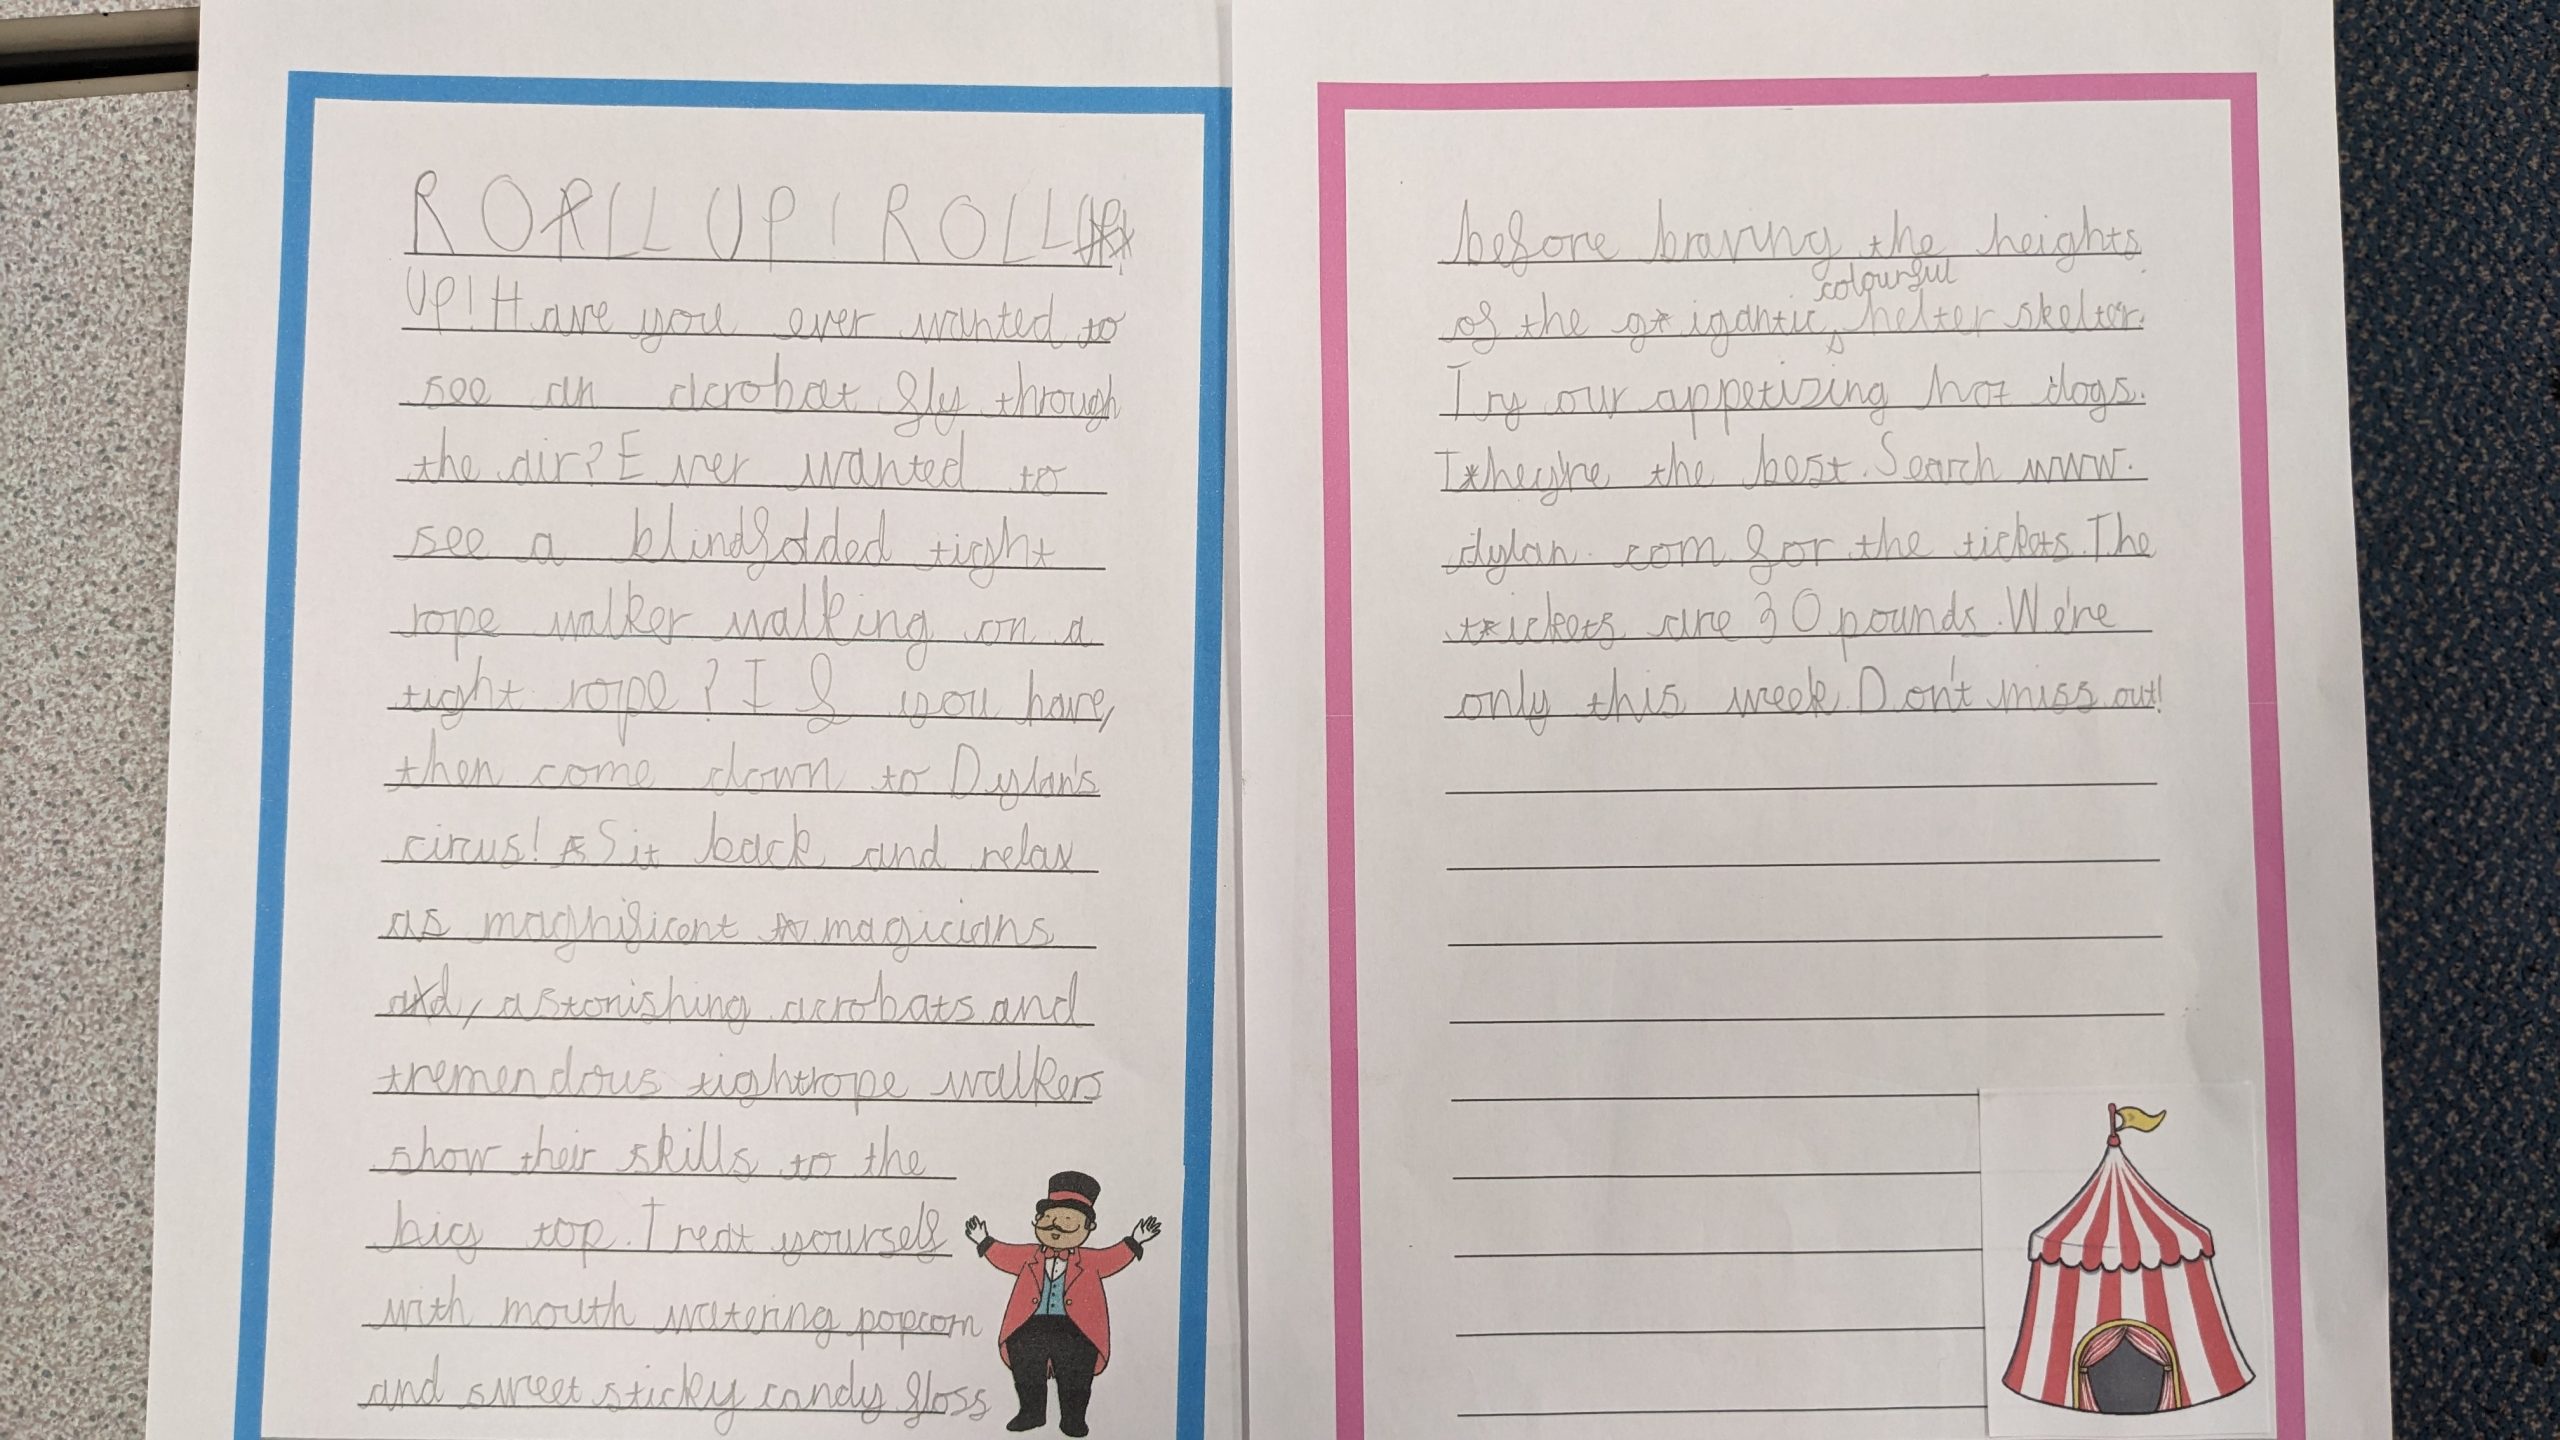 ROLL UP! ROLL
UP! Have you ever wanted to
see an acrobat fly through
the air? Ever wanted to
see a blindfolded tight
rope walker walking on a
tight rope? If you have,
then come down to Dylan's
circus! Sit back and relax
as magnificent magicians
, astonishing acrobats and
tremendous tightrope walkers
show their skills to the
big top. Treat yourself
with mouth watering popcorn
and sweet sticky candy floss
before braving the heights
of the gigantic, colourful helter skelter.
Try our appetizing hot dogs.
They're the best. Search www.
dylan.com for the tickets. The
tickets are 30 pounds. We're
only this week. Don't miss out!